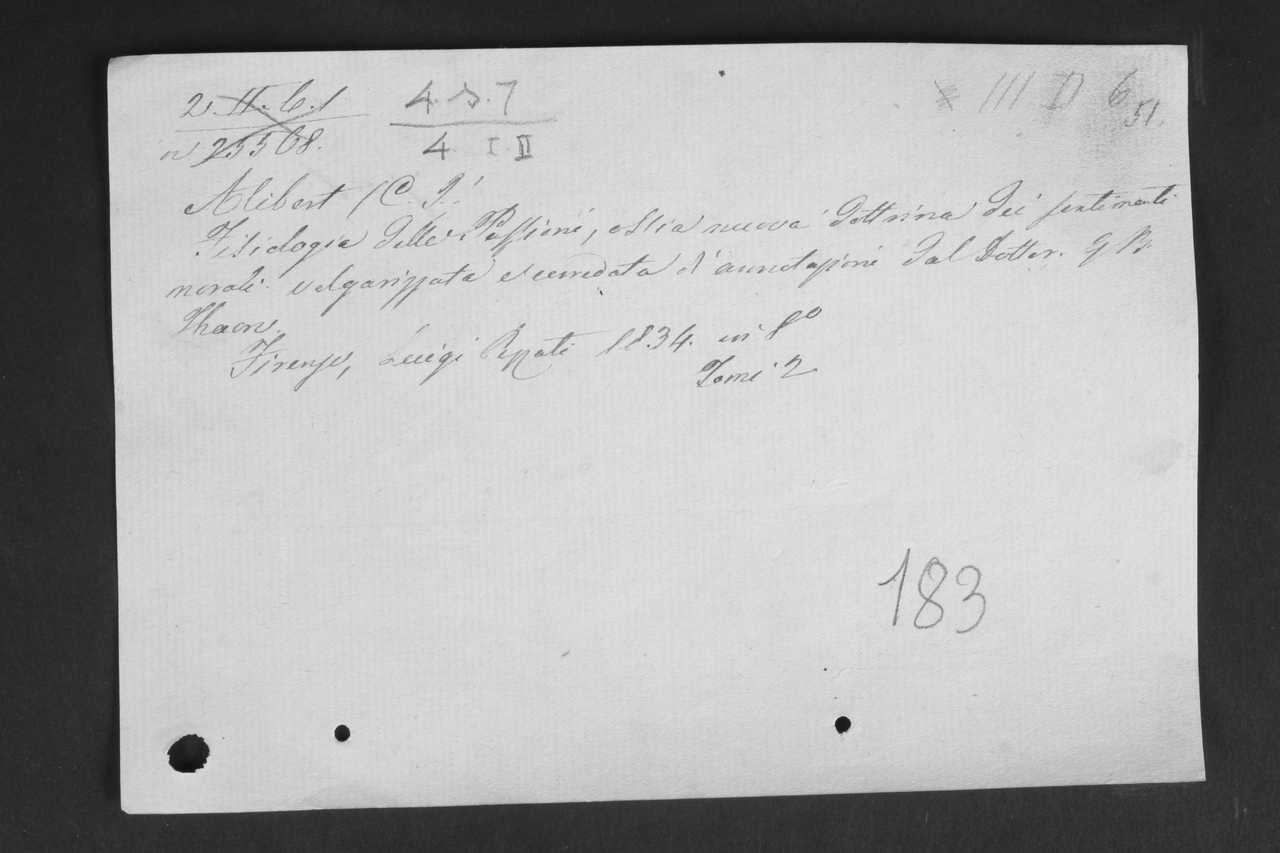 2. II. C. 1 4. D. 7 III D 6
n 25568. 4 I II 51.
Alibert (C. J.
Fisiologia delle Passioni, ossia nuova dottrina dei sentimenti
morali. volgarizzata e corredata d'annotazioni dal Dottor. G B
Thaon.
Firenze, Luigi Pezzati 1834. in 8º
Tomi 2
183